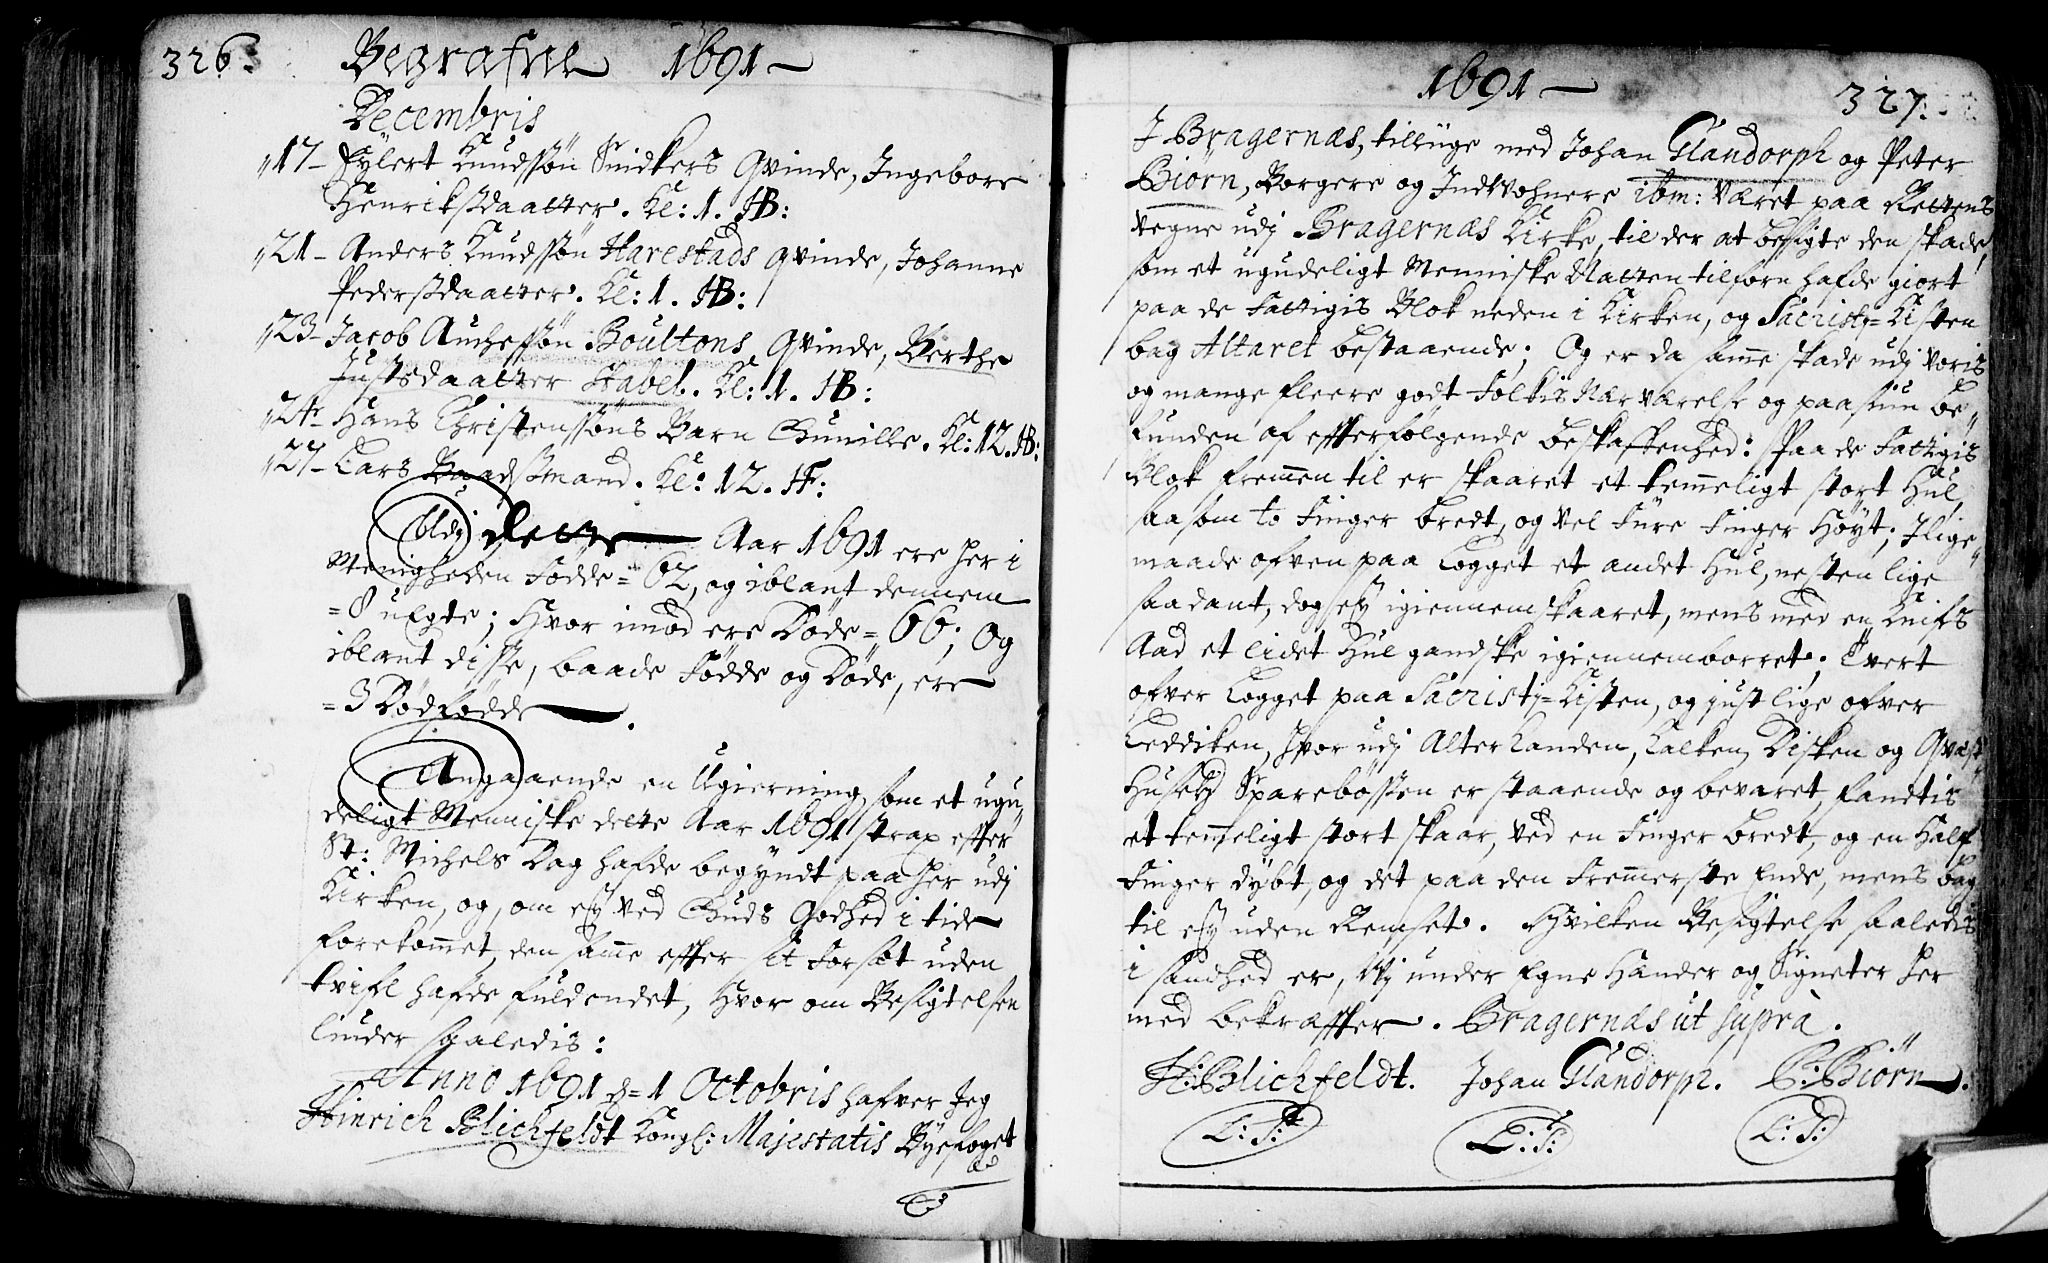 326.
Begrafne 1691
Decembris
17 - Eylert Knudssön Snidkers Qvinde, Ingebore
Henrichsdaatter. Kl: 1. HB:
21 - Anders Knudssön Harestads Qvinde, Johanne
Pedersdaatter. Kl: 1. HB:
23 - Jacob Boultons Qvinde, Berthe
Justsdaatter Stabel. Kl: 1. HB:
24 - Hans Christenssöns Barn Gunille. Kl: 12. HB:
27 - Lars Baadsmand. Kl: 12. H:
Udj dette Aar 1691 ere her i
Menigheden Födde = 62, og iblant dennem
= 8 uegte; Hvor imod ere Döde = 66; Og
iblant disse, baade Födde og Döde, ere
= 3 Dödfödde.
Angaaende en Ugierning, som et ugu-
deligt Menniske dette Aar 1691 strax effter
St: Michels Dag hafde begyndt paa her udj
Kirken, og, om ej ved Guds Godhed i tide
forekommet, den samme effter sit Forsæt uden
tvifl hafde fuldendet, Hvor om Besigtelsen
liuder saaledis:
Anno 1691 d= 1 Octobris hafver Jeg
Hinrich Blichfeldt Kongl: Majestatis Byefoget
1691
327.
J Bragernæs, tillige med Johan Glandorph og Peter
Biörn, Borgere og Indvohnere ibm: været paa Rettens
vegne udj Bragernæs Kirke, til der at besigte den skade,
som et ugudeligt Menniske Natten tilforn hafde giort
paa de Fattigis Blok neden i Kirken, og Sacristj-Kisten
bag Altaret bestaaende; Og er da samme skade udj voris
og mange fleere godt Folkis Nærværelse og paasiun be-
funden af effterfölgende beskaffenhed: Paa de Fattigis
Blok fremmen til er skaaret et temmeligt stort Hul,
saasom to Finger bredt, og vel Fiire Finger Höyt; Ilige-
maade ofven paa Logget et andet Hul, nesten lige
saadant, dog ej igiennemskaaret, mens med en Knifs
Aad et lidet Hul gandske igiennemborret. Tvert
ofver Logget paa Sacristj-Kisten, og just lige ofver
Leddiken, hvor udj Alter Kanden, Kalken, Disken og Qvæst
Huset Sparebössen er staaende og bevaret, fandtis
et temmeligt stort skaar, ved en Finger bredt, og en Half
Finger dybt, og det paa den Fremmerste Ende, mens bag
til ej uden Remset. Hvilken Besigtelse saaledis
i sandhed er, Vj under Egne Hænder og Signeter her
med bekræffter. Bragernæs ut supra.
H: Blichfeldt. Johan Glandorph. P: Biörn.
L: S: L: S: L: S: